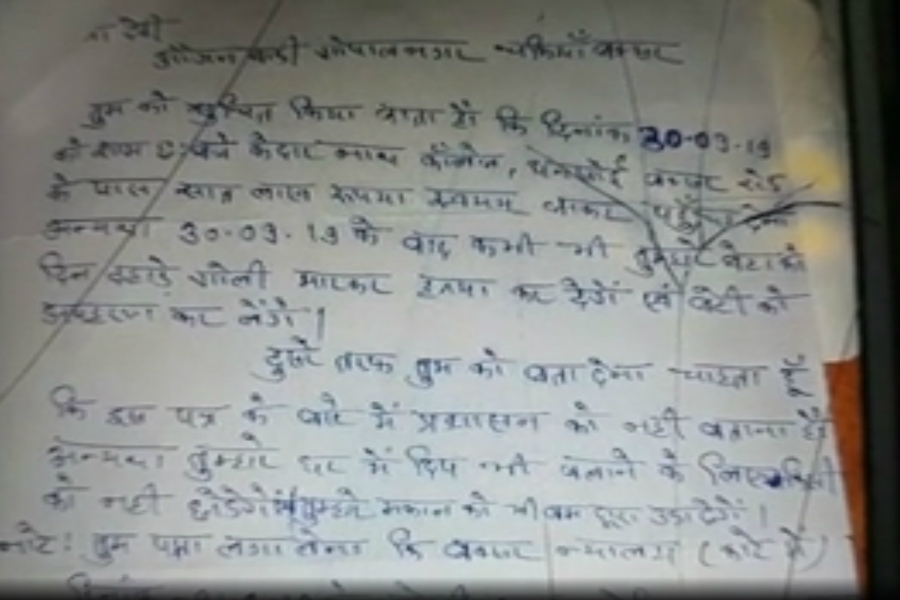 देवी
गोपालनगर
तुम को सूचित किया जाता है कि दिनांक 30-03-19
को शाम बजे केदार नाथ कॉलेज, बक्सर रोड
के पास सात लाख रूपया लाकर पहुँचा देना
अन्यथा 30-03-19 के बाद कभी भी तुम्हारे बेटा को
दिन दहाड़े गोली मारकर हत्या कर देगें एवं बेटी को
अपहरण कर लेंगे।
दुसरे तरफ तुम को बता देना चाहता हूँ
कि इस पत्र के बारे में प्रशासन को नही बताना है
अन्यथा तुम्हारे घर में दिप भी जलाने के लिए किसी
को नही छोडेगे तुम्हारे मकान को भी बम द्वारा उड़ा देगें।
नोट: तुम पता लगा लेना कि बक्सर न्यालय (कोर्ट में)